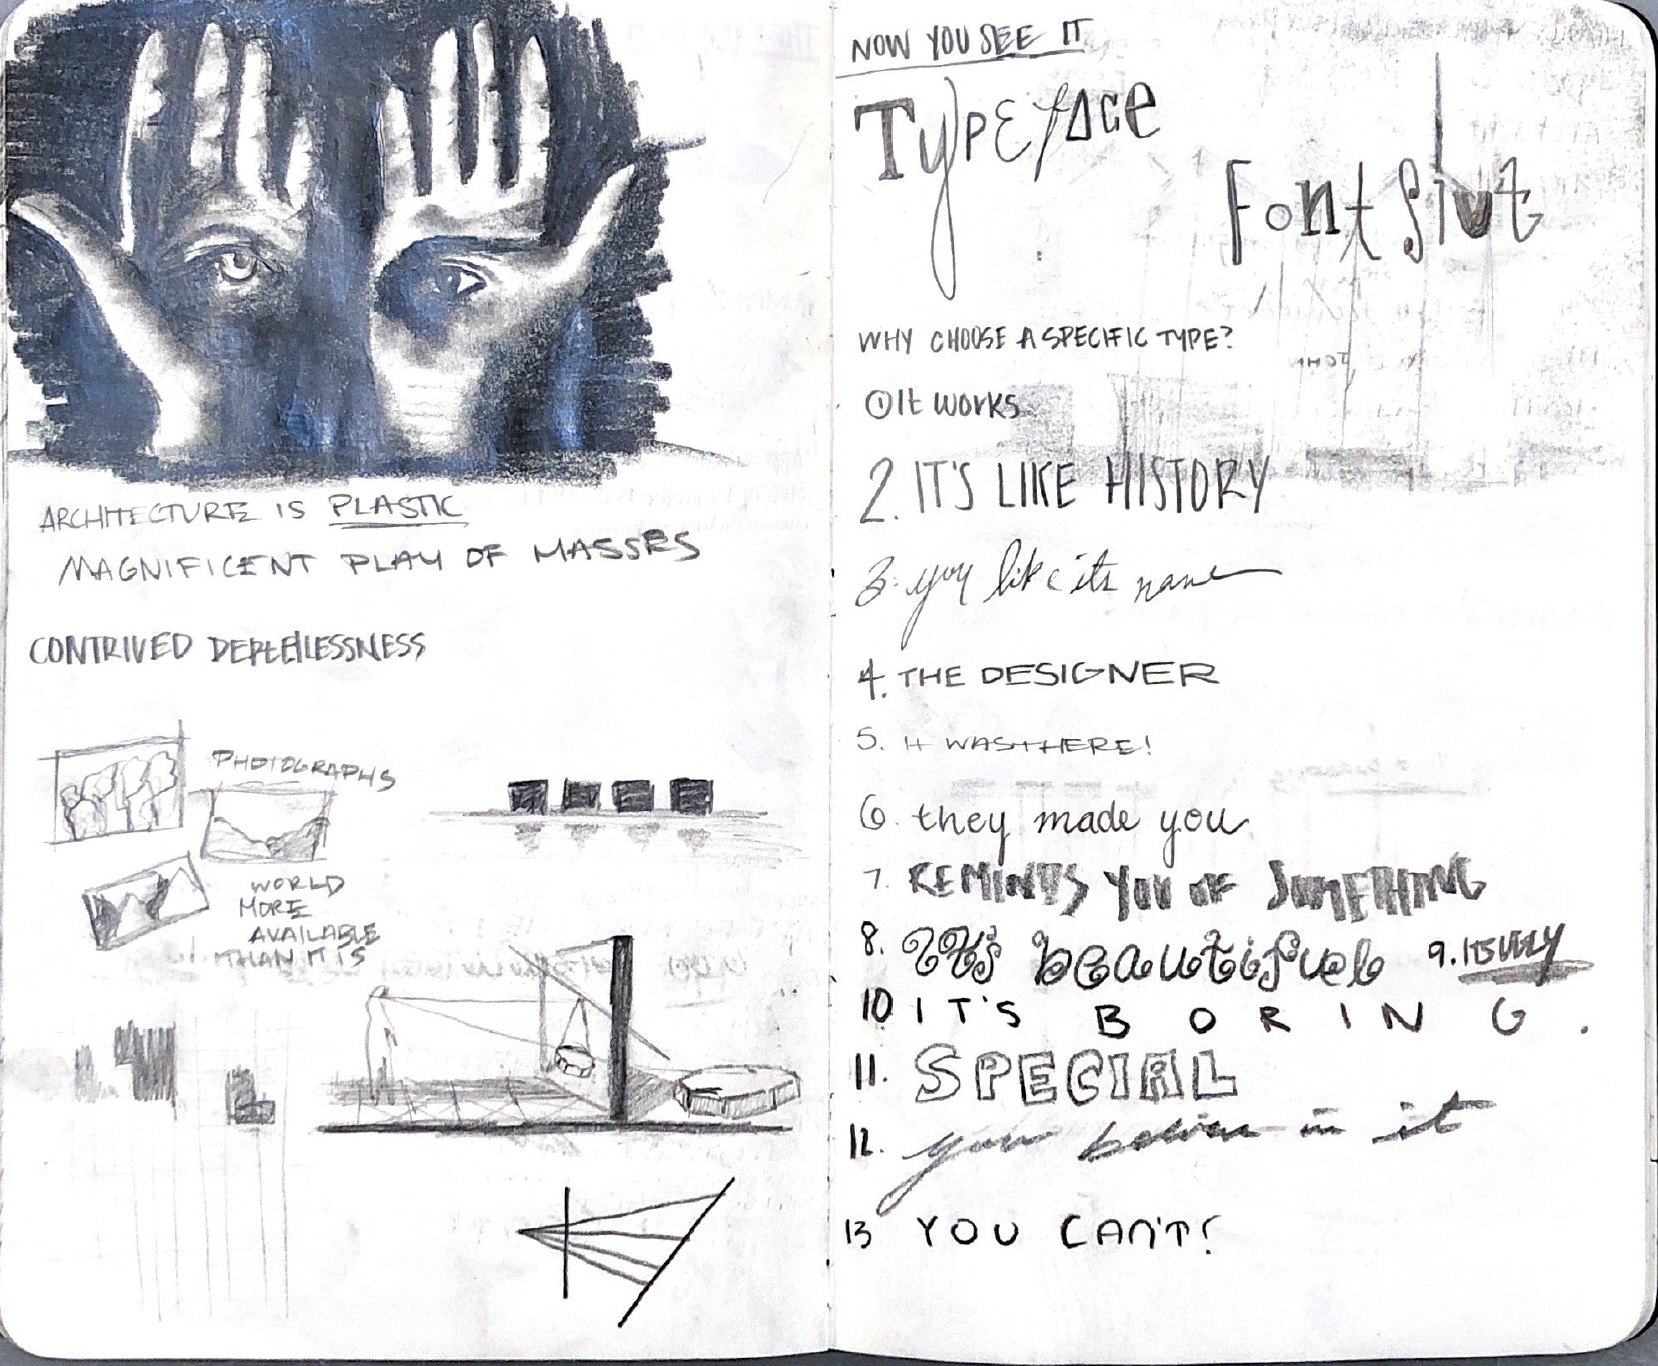 ARCHITECTURE IS PLASTIC
MAGNIFICENT PLAY OF MASSES
CONTRIVED DEPTHLESSNESS
PHOTOGRAPHS
WORLD
MORE
AVAILABLE
THAN IT IS
NOW YOU SEE IT
Typeface
Font Slut
WHY CHOOSE A SPECIFIC TYPE?
① It works
2. IT'S LIKE HISTORY
3. you like its name
4. THE DESIGNER
5. It WAS THERE!
6. they made you
7. REMINDS YOU OF SOMETHING
8. It's beautiful 9. ITS UGLY
10 IT'S BORING.
11. SPECIAL
12. you believe in it
13 YOU CAN'T!